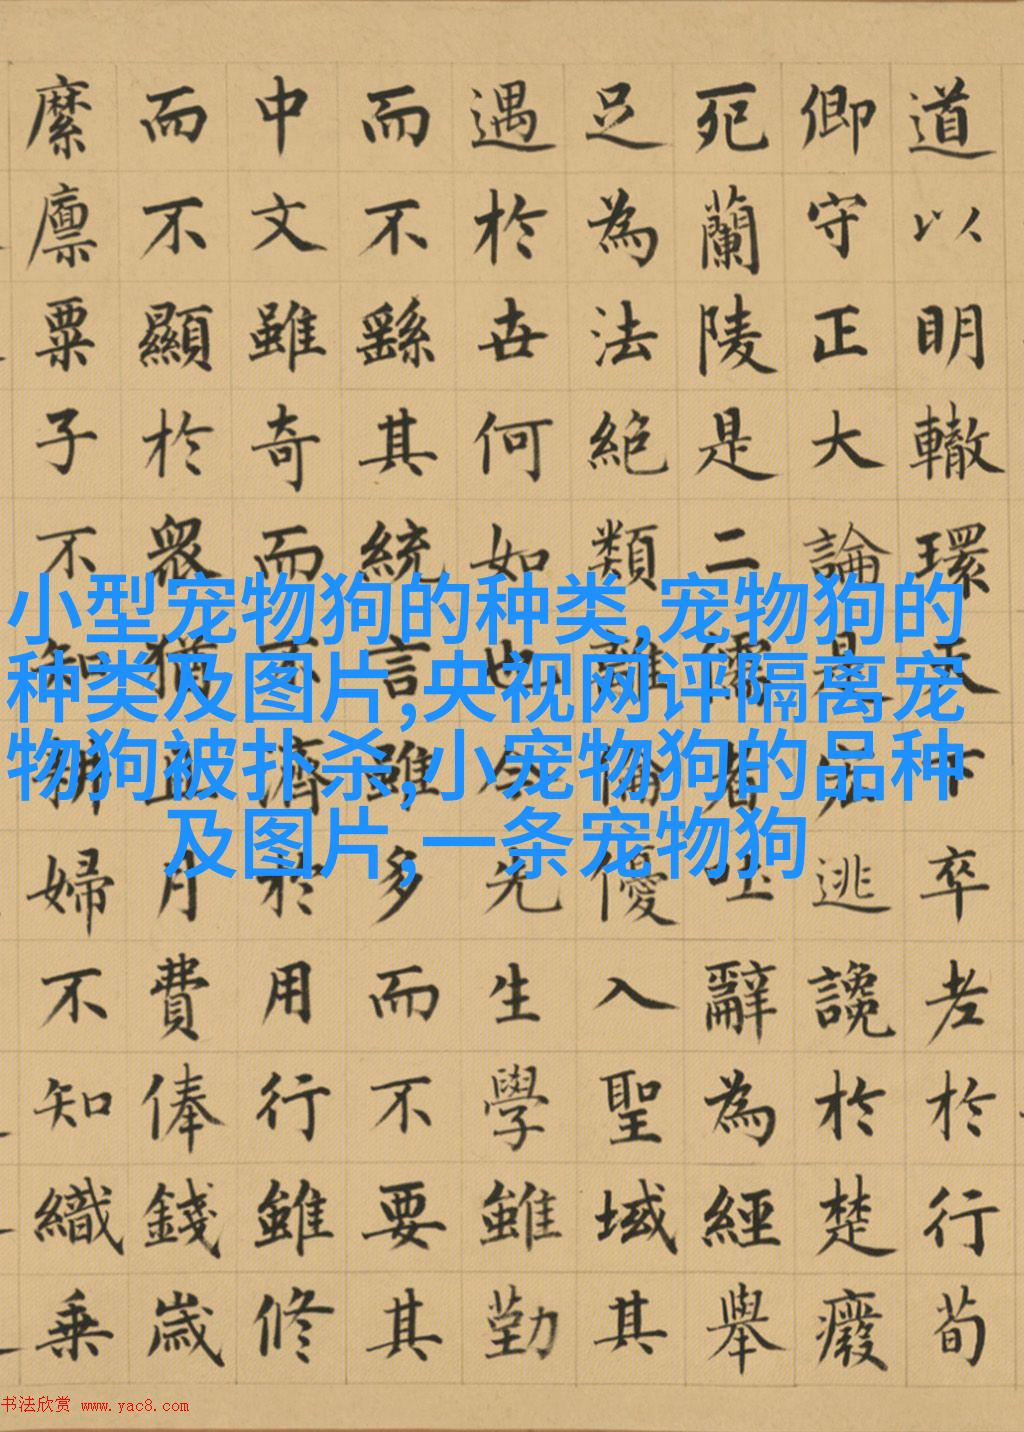 道以明轍環天下卒老於行荀
卿守正大論是弘逃讒於楚廢
死蘭陵是二儒者吐辭為經舉
足為法絕類離倫優入聖域其
遇於世何如也今先生學雖勤
而不繇其統言雖多而不要其
中文雖奇而不濟於用行雖修
而不顯於衆猶且月費俸錢歲
縻廩粟子不知耕婦不知織乗
小型宠物狗的种类,宠物狗的
种类及图片,央视网评隔离宠
物狗被扑杀,小宠物狗的品种
及图片,一条宠物狗
书法欣赏 www.yac8.com